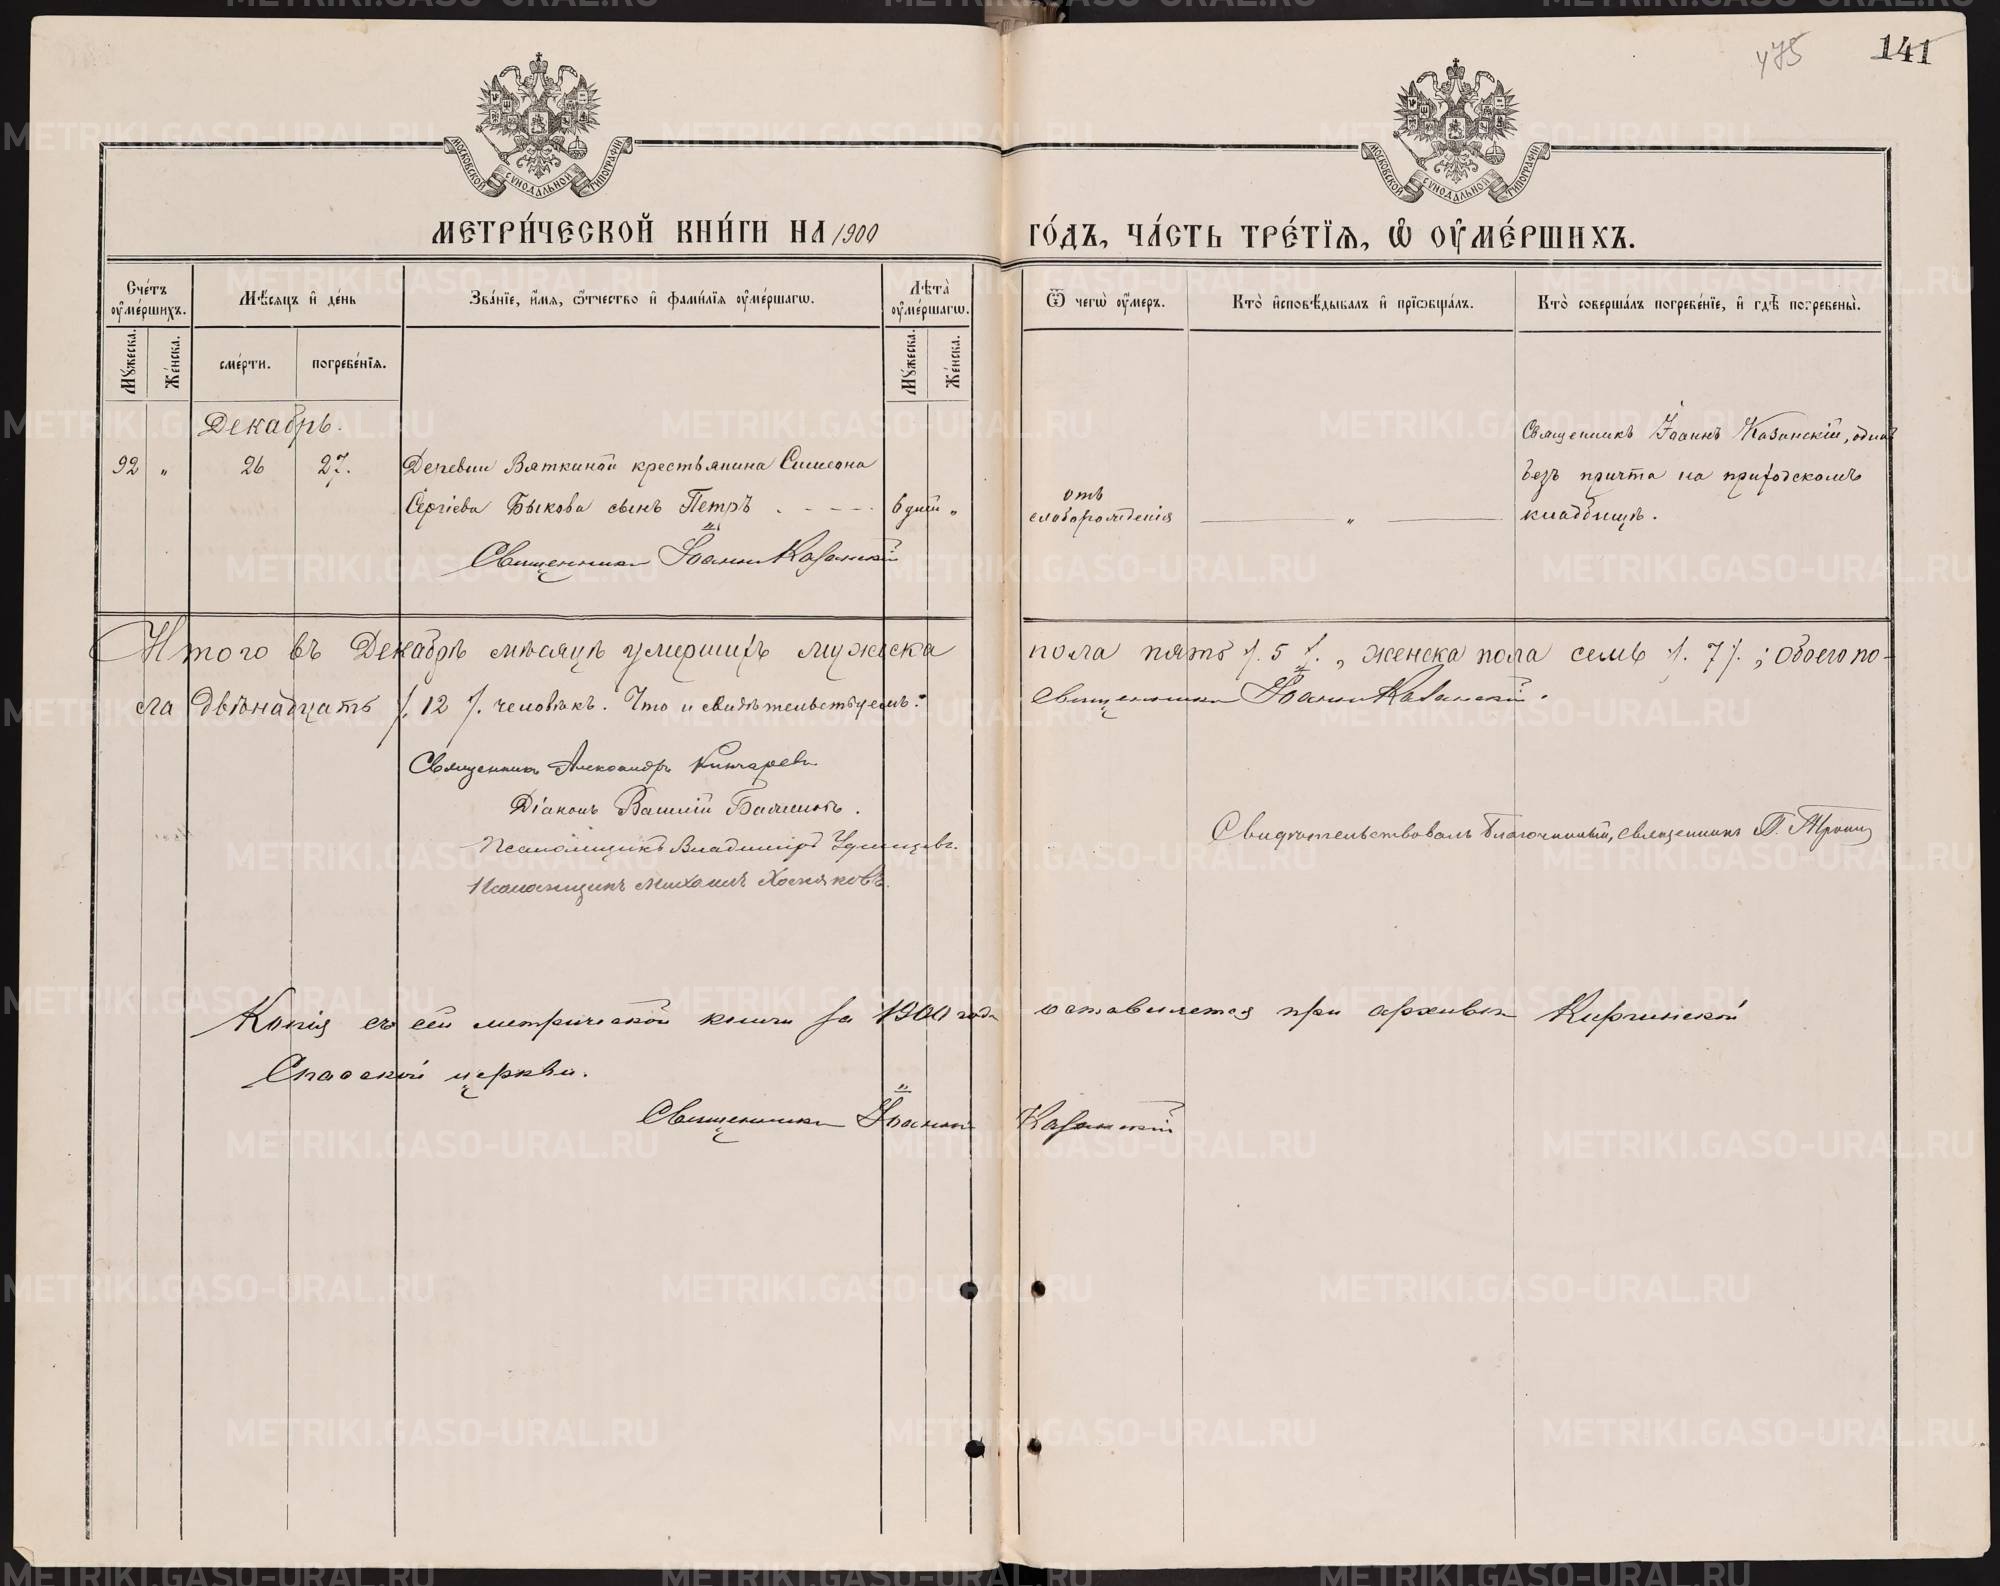 475
141
МОСКОВСКОЙ СѴНОДАЛЬНОЙ ТИПОГРАФІИ
МОСКОВСКОЙ СѴНОДАЛЬНОЙ ТИПОГРАФІИ
МЕТРИ́ЧЕСКОЙ КНИ́ГИ НА 1900 ГО́ДЪ, ЧА́СТЬ ТРЕ́ТЇѦ, Ѡ ОУ҆МЕ́РШИХЪ.
Сче́тъ оу҆ме́ршихъ.
Мꙋ́жеска.
Же́нска.
Мѣ́сѧцъ и҆ де́нь
сме́рти.
погребе́нїѧ.
Зва́нїе, и҆́мѧ, ѻ҆́тчество и҆ фами́лїѧ оу҆ме́ршагѡ.
Лѣта̀ оу҆ме́ршагѡ.
Мꙋ́жеска.
Же́нска.
Ѿ чегѡ̀ оу҆́меръ.
Кто̀ и҆сповѣ́дывалъ и҆ прїѡбща́лъ.
Кто̀ соверша́лъ погребе́нїе, и҆ гдѣ̀ погребены̀.
Декабрь.
92 „ 26 27. Деревни Вяткиной крестьянина Симеона
Сергіева Быкова сынъ Петръ . - - - - 6 дней „
отъ
слаборожденія „
Священникъ Іоаннъ Казанскій, одинъ
безъ причта на приходскомъ
кладбищѣ.
Священникъ Іоаннъ Казанскій
Итого въ Декабрѣ мѣсяцѣ умершихъ мужеска пола пять /. 5 /. , женска пола семь /. 7 /. ; обоего по-
ла двѣнадцать /. 12 /. человѣкъ. Что и свидѣтельствуемъ: Священникъ Іоаннъ Казанскій.
Священникъ Александръ
Діаконъ Василій
Псаломщикъ Владиміръ Удинцевъ.
Псаломщикъ Михаилъ Хомяковъ.
Свидѣтельствовалъ благочинный, священникъ П.
Копія съ сей метрической книги за 1900 годъ оставляется при архивѣ Киргинской
Спасской церкви.
Священникъ Іоаннъ Казанскій
METRIKI.GASO-URAL.RU